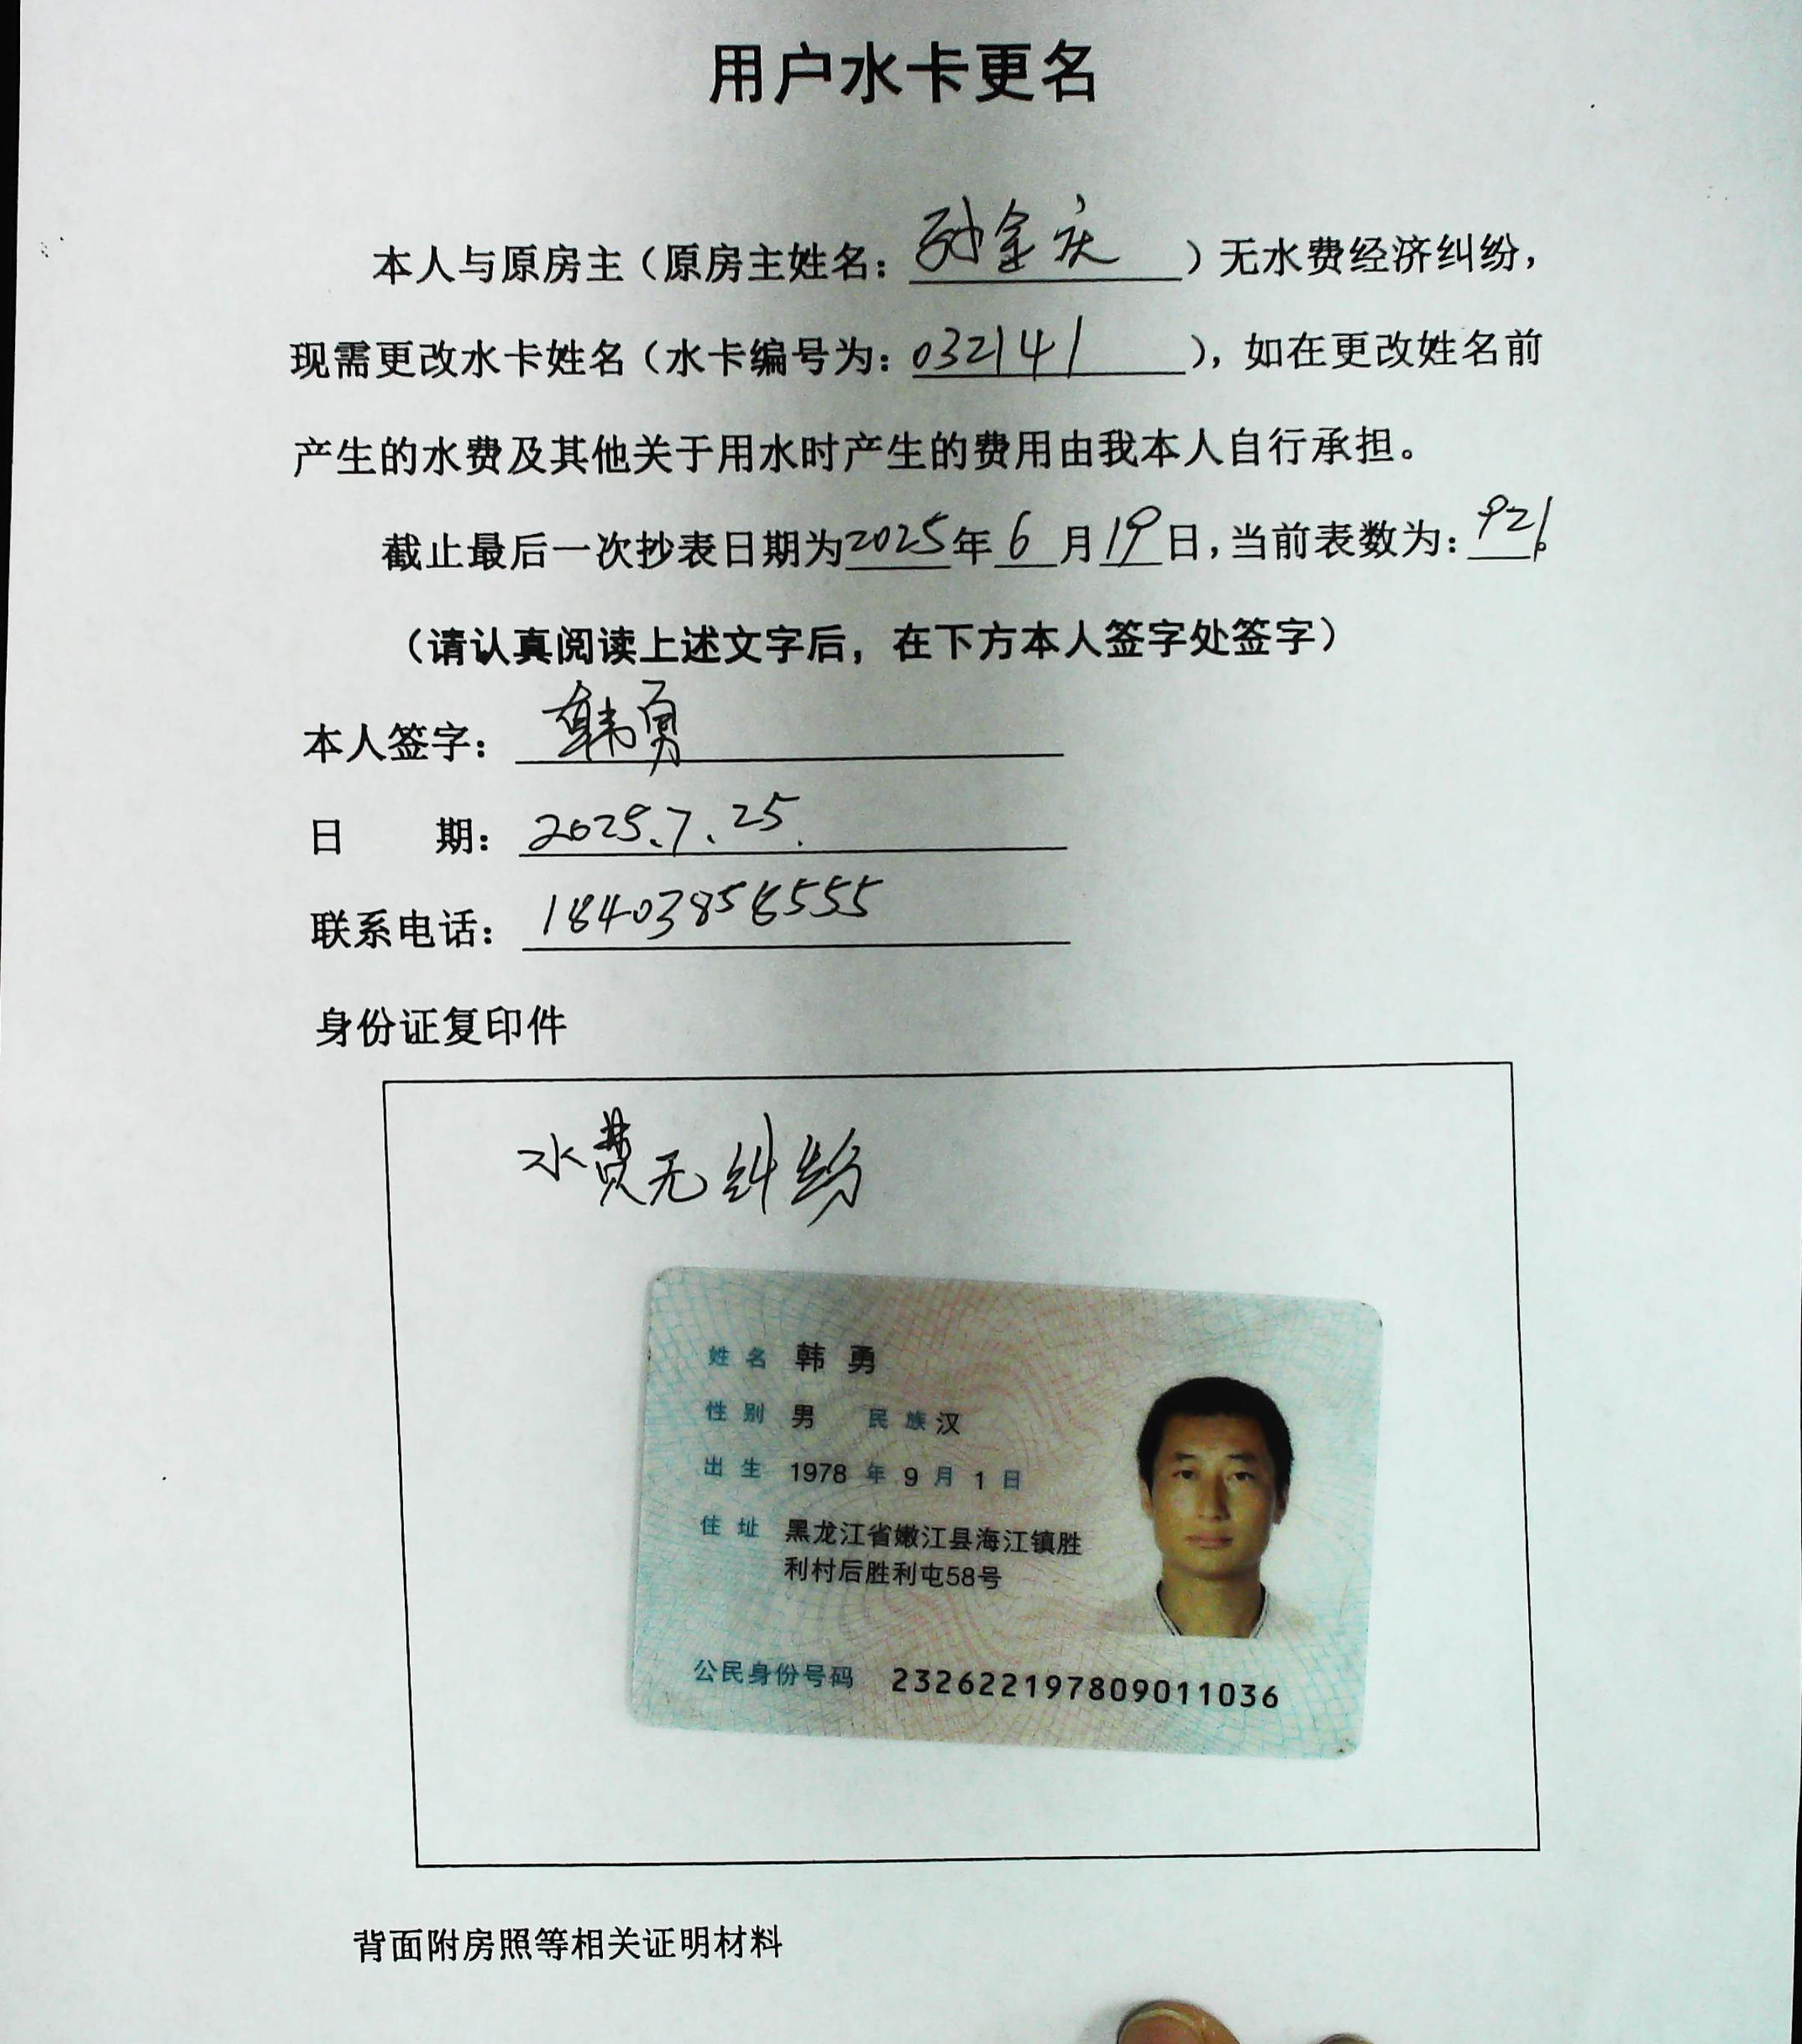 用户水卡更名
本人与原房主（原房主姓名：孙金庆）无水费经济纠纷，
现需更改水卡姓名（水卡编号为：032141），如在更改姓名前
产生的水费及其他关于用水时产生的费用由我本人自行承担。
截止最后一次抄表日期为2025年6月19日，当前表数为：921。
（请认真阅读上述文字后，在下方本人签字处签字）
本人签字：韩勇
日 期：2025.7.25.
联系电话：18403858555
身份证复印件
水费无纠纷
姓名 韩勇
性别 男 民族 汉
出生 1978年9月1日
住址 黑龙江省嫩江县海江镇胜
利村后胜利屯58号
公民身份号码 232622197809011036
背面附房照等相关证明材料